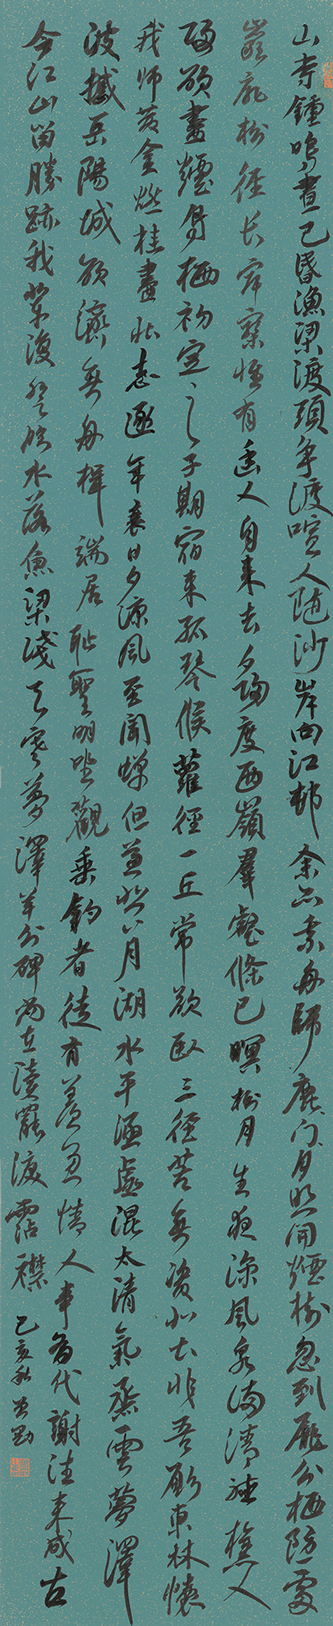 山寺鍾鳴晝已昏漁梁渡頭爭渡喧人隨沙岸向江邨余亦乘舟歸鹿門月照開煙樹忽到龐公栖隱處
巖扉松徑長寂寥惟有幽人自來去夕陽度西嶺羣壑倏已暝松月生夜涼風泉滿清聽樵人
歸欲盡煙鳥栖初定之子期宿來孤琴候蘿徑一丘常欲臥三徑苦無資北土非吾願東林懷
我師黃金燃桂盡壯志逐年衰日夕涼風至聞蟬但益悲八月湖水平涵虛混太清氣蒸雲夢澤
波撼岳陽城欲濟無舟楫端居恥聖明坐觀垂釣者徒有羨魚情人事有代謝往來成古
今江山留勝跡我輩復登臨水落魚梁淺天寒夢澤羊公碑尚在讀罷淚霑襟
己亥秋